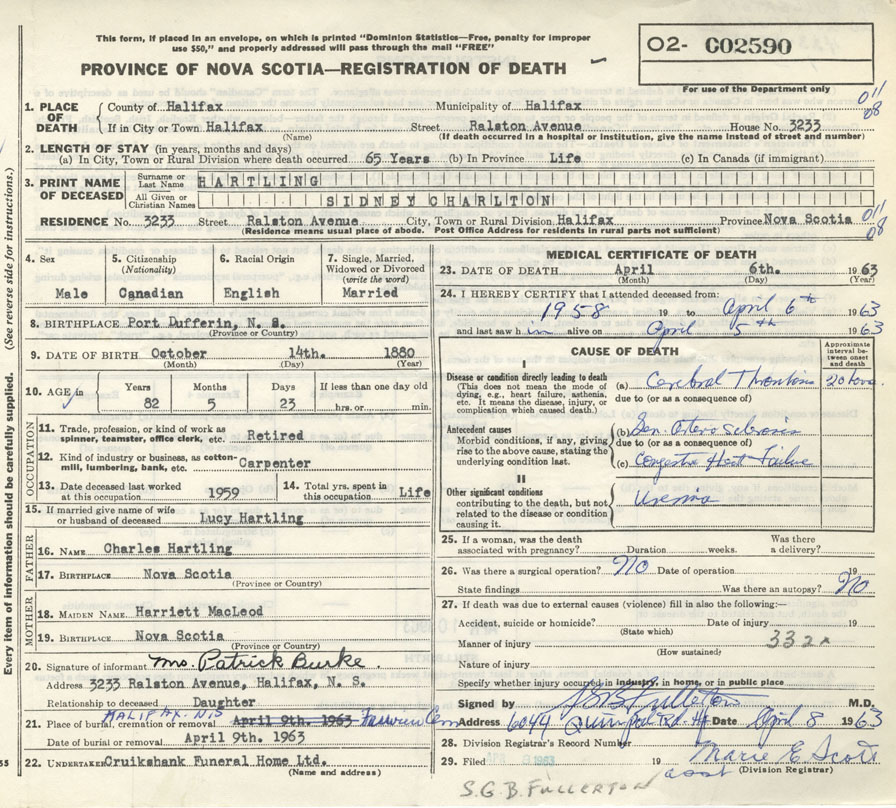 This form, if placed in an envelope, on which is printed "Dominion Statistics—Free, penalty for improper
use $50," and properly addressed will pass through the mail "FREE"
PROVINCE OF NOVA SCOTIA—REGISTRATION OF DEATH
02- C02590
For use of the Department only
011
08
1. PLACE OF DEATH
County of Halifax Municipality of Halifax
If in City or Town Halifax Street Ralston Avenue House No. 3233
(Name) (If death occurred in a hospital or institution, give the name instead of street and number)
2. LENGTH OF STAY (in years, months and days)
(a) In City, Town or Rural Division where death occurred 65 Years (b) In Province Life (c) In Canada (if immigrant)
3. PRINT NAME OF DECEASED
Surname or Last Name HARTLING
All Given or Christian Names SIDNEY CHARLTON
RESIDENCE No. 3233 Street Ralston Avenue City, Town or Rural Division Halifax Province Nova Scotia
(Residence means usual place of abode. Post Office Address for residents in rural parts not sufficient)
011
08
(See reverse side for instructions.)
Every item of information should be carefully supplied.
55
4. Sex
Male
5. Citizenship (Nationality)
Canadian
6. Racial Origin
English
7. Single, Married, Widowed or Divorced (write the word)
Married
8. BIRTHPLACE Port Dufferin, N. S.
(Province or Country)
9. DATE OF BIRTH October 14th. 1880
(Month) (Day) (Year)
10. AGE in
Years Months Days If less than one day old
82 5 23 hrs. or min.
OCCUPATION
11. Trade, profession, or kind of work as spinner, teamster, office clerk, etc. Retired
12. Kind of industry or business, as cotton-mill, lumbering, bank, etc. Carpenter
13. Date deceased last worked at this occupation 1959
14. Total yrs. spent in this occupation Life
15. If married give name of wife or husband of deceased Lucy Hartling
FATHER
16. NAME Charles Hartling
17. BIRTHPLACE Nova Scotia
(Province or Country)
MOTHER
18. MAIDEN NAME Harriett MacLeod
19. BIRTHPLACE Nova Scotia
(Province or Country)
20. Signature of informant Mrs. Patrick Burke.
Address 3233 Ralston Avenue, Halifax, N. S.
Relationship to deceased Daughter
HALIFAX. NS
21. Place of burial, cremation or removal April 9th. 1963 Fairview Cem
Date of burial or removal April 9th. 1963
22. UNDERTAKER Cruikshank Funeral Home Ltd.
(Name and address)
MEDICAL CERTIFICATE OF DEATH
23. DATE OF DEATH April 6th. 1963
(Month) (Day) (Year)
24. I HEREBY CERTIFY that I attended deceased from:
1958 19 to April 6th 1963
and last saw him alive on April 5th 1963
CAUSE OF DEATH
Approximate interval between onset and death
I
Disease or condition directly leading to death
(This does not mean the mode of dying, e.g., heart failure, asthenia, etc. It means the disease, injury, or complication which caused death.)
(a) Cerebral Thrombosis
due to (or as a consequence of)
Antecedent causes
Morbid conditions, if any, giving rise to the above cause, stating the underlying condition last.
(b) Gen. Arterio Sclerosis
due to (or as a consequence of)
(c) Congestive Heart Failure
II
Other significant conditions
contributing to the death, but not related to the disease or condition causing it.
Uremia
25. If a woman, was the death associated with pregnancy? Duration weeks. Was there a delivery?
26. Was there a surgical operation? No Date of operation 19
State findings Was there an autopsy? No
27. If death was due to external causes (violence) fill in also the following:—
Accident, suicide or homicide? Date of injury 19
(State which)
Manner of injury 332
(How sustained)
Nature of injury
Specify whether injury occurred in industry, in home, or in public place
Signed by SGB Fullerton M.D.
Address 6044 Quinpool Rd. Hfx Date April 8 1963
28. Division Registrar's Record Number
29. Filed 1963 19 Marie E. Scott
asst (Division Registrar)
S.G.B. FULLERTON